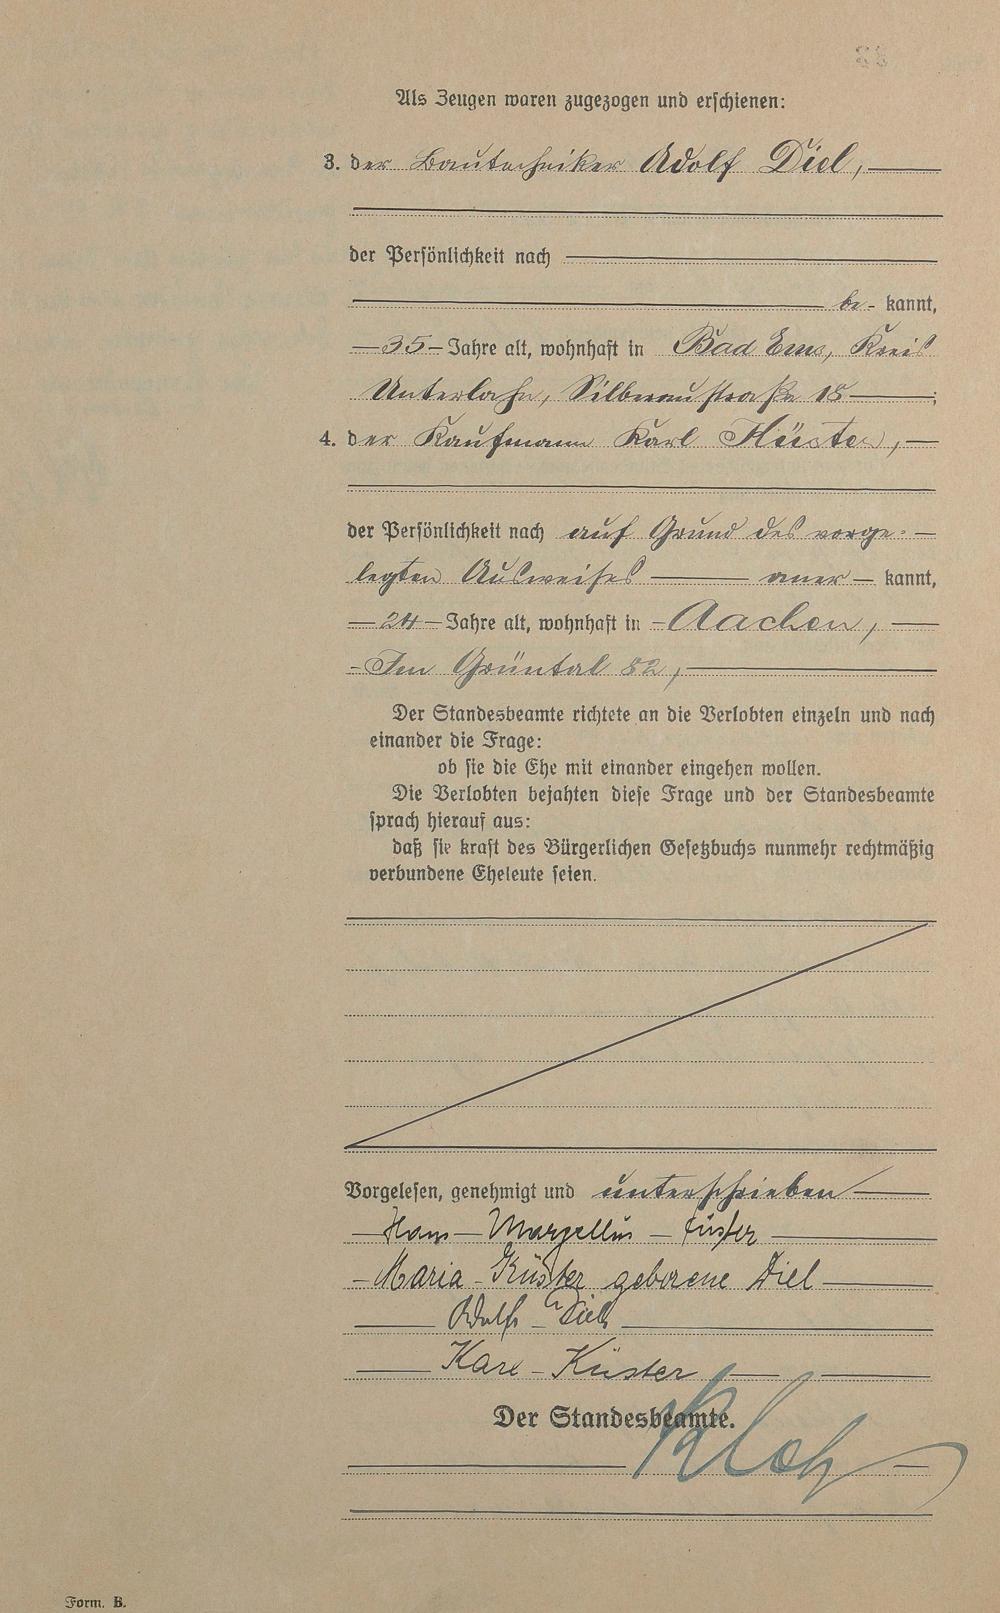 Als Zeugen waren zugezogen und erschienen:
3. der Bautechniker Adolf Diel,
der Persönlichkeit nach
be- kannt,
35 Jahre alt, wohnhaft in Bad Ems, Kreis
Unterlahn, Silberaustraße 18 ;
4. der Kaufmann Karl Küster,
der Persönlichkeit nach auf Grund des vorge-
legten Ausweises aner- kannt,
24 Jahre alt, wohnhaft in Aachen,
Im Grüntal 82,
Der Standesbeamte richtete an die Verlobten einzeln und nach
einander die Frage:
ob sie die Ehe mit einander eingehen wollen.
Die Verlobten bejahten diese Frage und der Standesbeamte
sprach hierauf aus:
daß sie kraft des Bürgerlichen Gesetzbuchs nunmehr rechtmäßig
verbundene Eheleute seien.
Vorgelesen, genehmigt und unterschrieben
Hans Marzellus Küster
Maria Küster geborene Diel
Adolf Diel
Karl Küster
Der Standesbeamte.
Form. B.